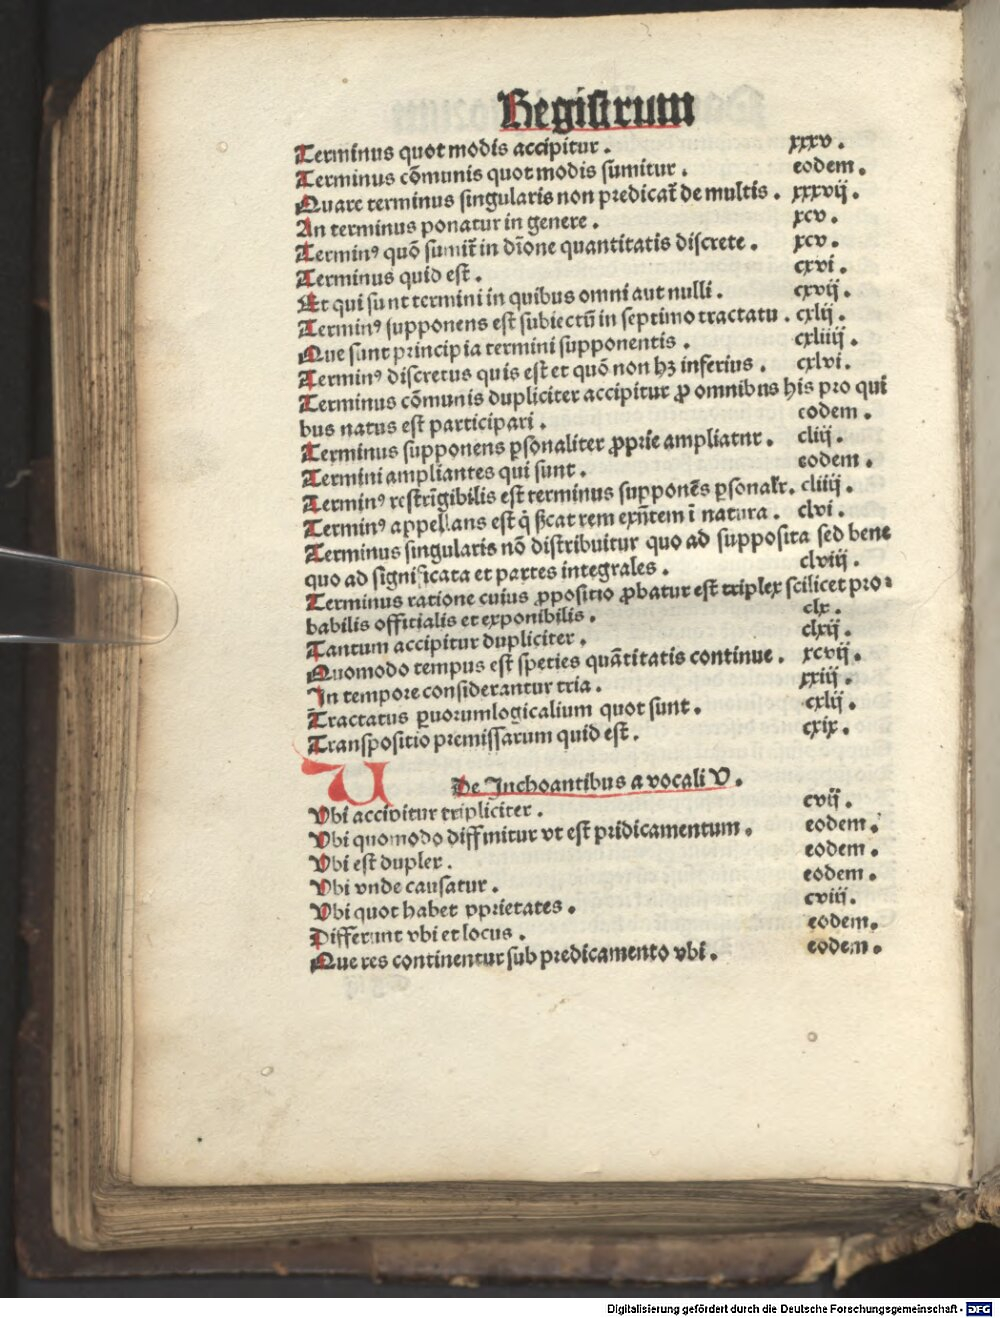 Registrum
Terminus quot modis accipitur . xxxv .
Terminus cõmunis quot modis sumitur . eodem .
Quare terminus singularis non predicat̃ de multis . xxxvij .
An terminus ponatur in genere . xcv .
Terminꝰ quõ sumit̃ in dĩone quantitatis discrete . xcv .
Terminus quid est . cxvi .
Et qui sunt termini in quibus omni aut nulli . cxvij .
Terminꝰ supponens est subiectũ in septimo tractatu . cxlij .
Que sunt principia termini supponentis . cxliiij .
Terminꝰ discretus quis est et quõ non hꝫ inferius . cxlvi .
Terminus cõmunis dupliciter accipitur ꝓ omnibus his pro qui
bus natus est participari . eodem .
Terminus supponens ꝑsonaliter ꝓprie ampliatur . cliij .
Termini ampliantes qui sunt . eodem .
Terminꝰ restrĩgibilis est terminus supponẽs ꝑsonalr̃ . cliiij .
Terminꝰ appellans est q̇ ſ̃cat rem exñtem ĩ natura . clvi .
Terminus singularis nõ distribuitur quo ad supposita sed bene
quo ad significata et partes integrales . clviij .
Terminus ratione cuius ꝓpositio ꝓbatur est triplex scilicet pro⸗
babilis officialis et exponibilis . clx .
Tantum accipitur dupliciter . clxij .
Quomodo tempus est species quãtitatis continue . xcvij .
In tempore considerantur tria . xxiij .
Tractatus ꝑuorumlogicalium quot sunt . cxlij .
Transpositio premissarum quid est . cxix .
U De Inchoantibus a vocali V .
Vbi accipitur tripliciter . cvij .
Vbi quomodo diffinitur vt est pridicamentum . eodem .
Vbi est duplex . eodem .
Vbi vnde causatur . eodem .
Vbi quot habet ꝓprietates . cviij .
Differunt vbi et locus . eodem .
Que res continentur sub predicamento vbi . eodem .
Digitalisierung gefördert durch die Deutsche Forschungsgemeinschaft - DFG